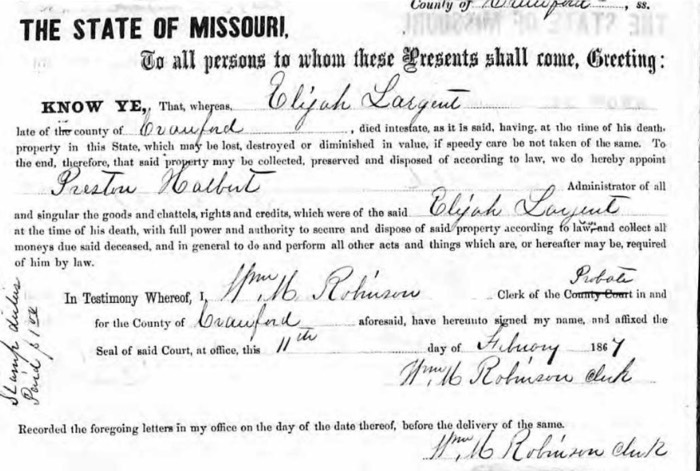 County of Crawford, ss.
THE STATE OF MISSOURI,
To all persons to whom these Presents shall come, Greeting:
KNOW YE, That, whereas, Elijah Largent
late of the county of Crawford, died intestate, as it is said, having, at the time of his death,
property in this State, which may be lost, destroyed or diminished in value, if speedy care be not taken of the same. To
the end, therefore, that said property may be collected, preserved and disposed of according to law, we do hereby appoint
Preston Halbert Administrator of all
and singular the goods and chattels, rights and credits, which were of the said Elijah Largent
at the time of his death, with full power and authority to secure and dispose of said property according to law, and collect all
moneys due said deceased, and in general to do and perform all other acts and things which are, or hereafter may be, required
of him by law.
Probate
In Testimony Whereof, I, Wm. M Robinson Clerk of the County Court in and
for the County of Crawford aforesaid, have hereunto signed my name, and affixed the
Seal of said Court, at office, this 11th day of February 1867
Wm, M Robinson Clerk
Stamp duties
Paid $1.00
Recorded the foregoing letters in my office on the day of the date thereof, before the delivery of the same.
Wm M Robinson Clerk